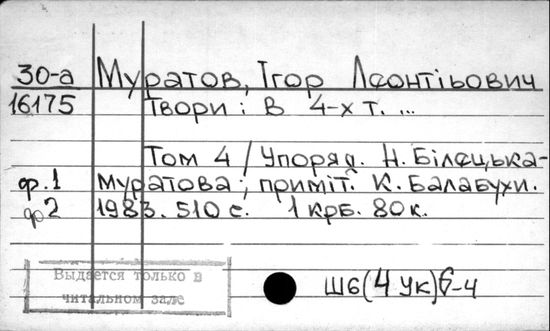 30-а Муратов, Ігор Леонтійович
16175 Твори: В 4-х т. ...
Том 4 / Упоряд. Н. Білецька-
ф.1 Муратова; приміт. К. Балабухи.
ф2 1983. 510 с. 1 крб. 80 к.
Выдается только в
читальном зале
Ш6(4 Ук)6-4